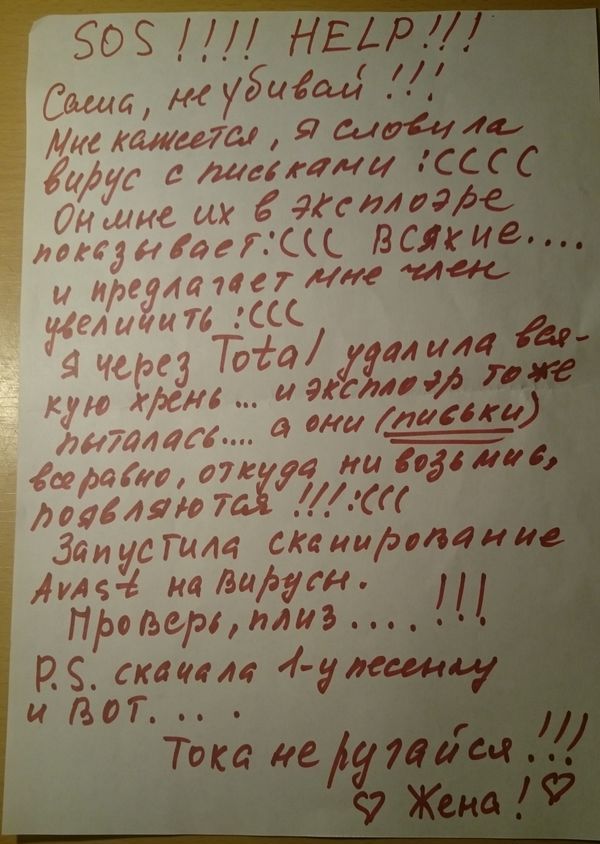 SOS !!!! HELP!!!
Саша, не убивай !!!
Мне кажется, я словила
вирус с письками :((((
Он мне их в эксплоэре
показывает:((( ВСЯКИЕ....
и предлагает мне член
увеличить :(((
Я через Total удалила вся-
кую хрень... и эксплоэр тоже
пыталась.... а они (письки)
всеравно, откуда ни возьмись,
появляются !!!:(((
Запустила сканирование
Avast на вирусы.
Проверь, плиз .... !!!
P.S. скачала 1-у песенку
и ВОТ. . . .
Тока не ругайся !!!
♡ Жена! ♡